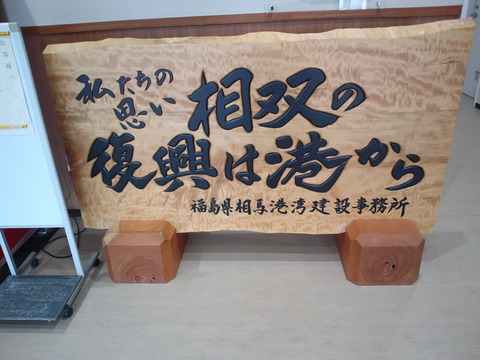 私たちの
思い
相双の
復興は港から
福島県相馬港湾建設事務所